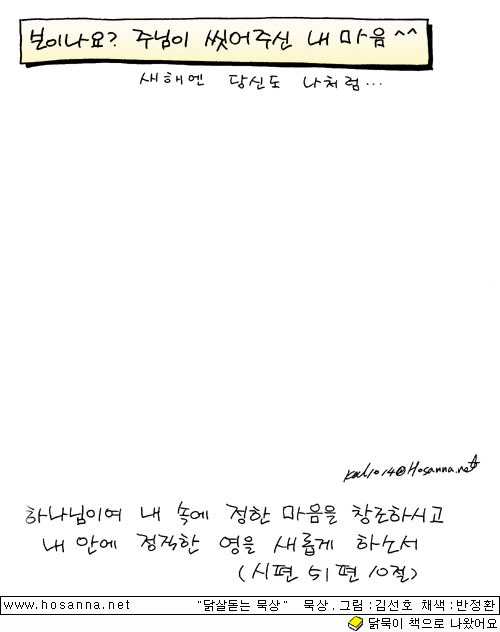 보이나요? 주님이 씻어주신 내 마음^^
새해엔 당신도 나처럼...
하나님이여 내 속에 정한 마음을 창조하시고
내 안에 정직한 영을 새롭게 하소서
(시편 51편 10절)
www.hosanna.net "닭살돋는 묵상" 묵상.그림:김선호 채색:반정환
닭묵이 책으로 나왔어요